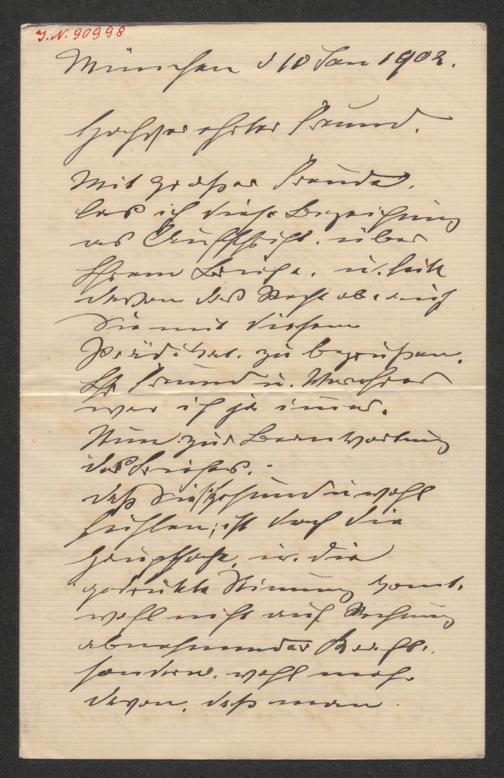 J.N. 90998
München d 10 Jan 1902.
Hochverehrter Freund.
Mit großer Freude.
las ich diese Bezeichnung
als Aufschrift. über
Ihrem Briefe. u. leite
davon das Recht ab auch
Sie mit diesem
Prädikat. zu begrüßen.
Ihr Freund u. Verehrer
war ich ja immer.
Nun zur Beantwortung
des Briefes.
daß Sie sich gesund u wohl
fühlen, ist doch die
Hauptsache, u. die
gedrückte Stimmung komt.
wohl nicht auf Rechnung
abnehmender Kräfte.
sondern. wohl mehr
davon. daß man